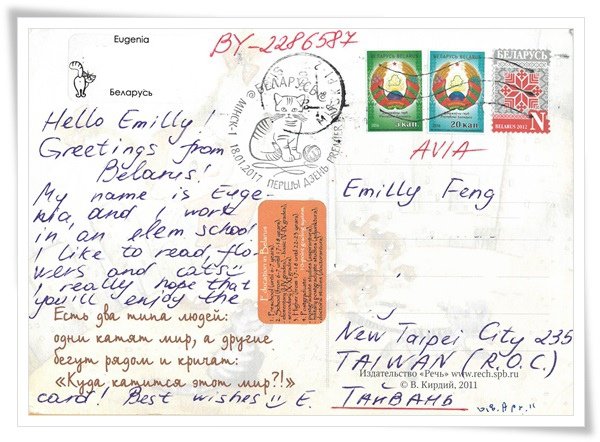 Eugenia
Беларусь
BY-2286587
БЕЛАРУСЬ
МІНСК-1 18.01.2017 ПЕРШЫ ДЗЕНЬ PREMIER
5 кап.
20 кап.
БЕЛАРУСЬ
BELARUS 2012 N
AVIA
Hello Emilly!
Greetings from
Belarus!
My name is Euge-
nia, and I work
in an elem school
I like to read, flo-
wers and cats
I really hope that
you'll enjoy the
Есть два типа людей:
одни катят мир, а другие
бегут рядом и кричат:
«Куда катится этот мир?!»
card! Best wishes E.
Education in Belarus
Emilly Feng
New Taipei City 235
TAIWAN (R.O.C.)
Издательство «Речь» www.rech.spb.ru
© В. Кирдий, 2011
Тайвань